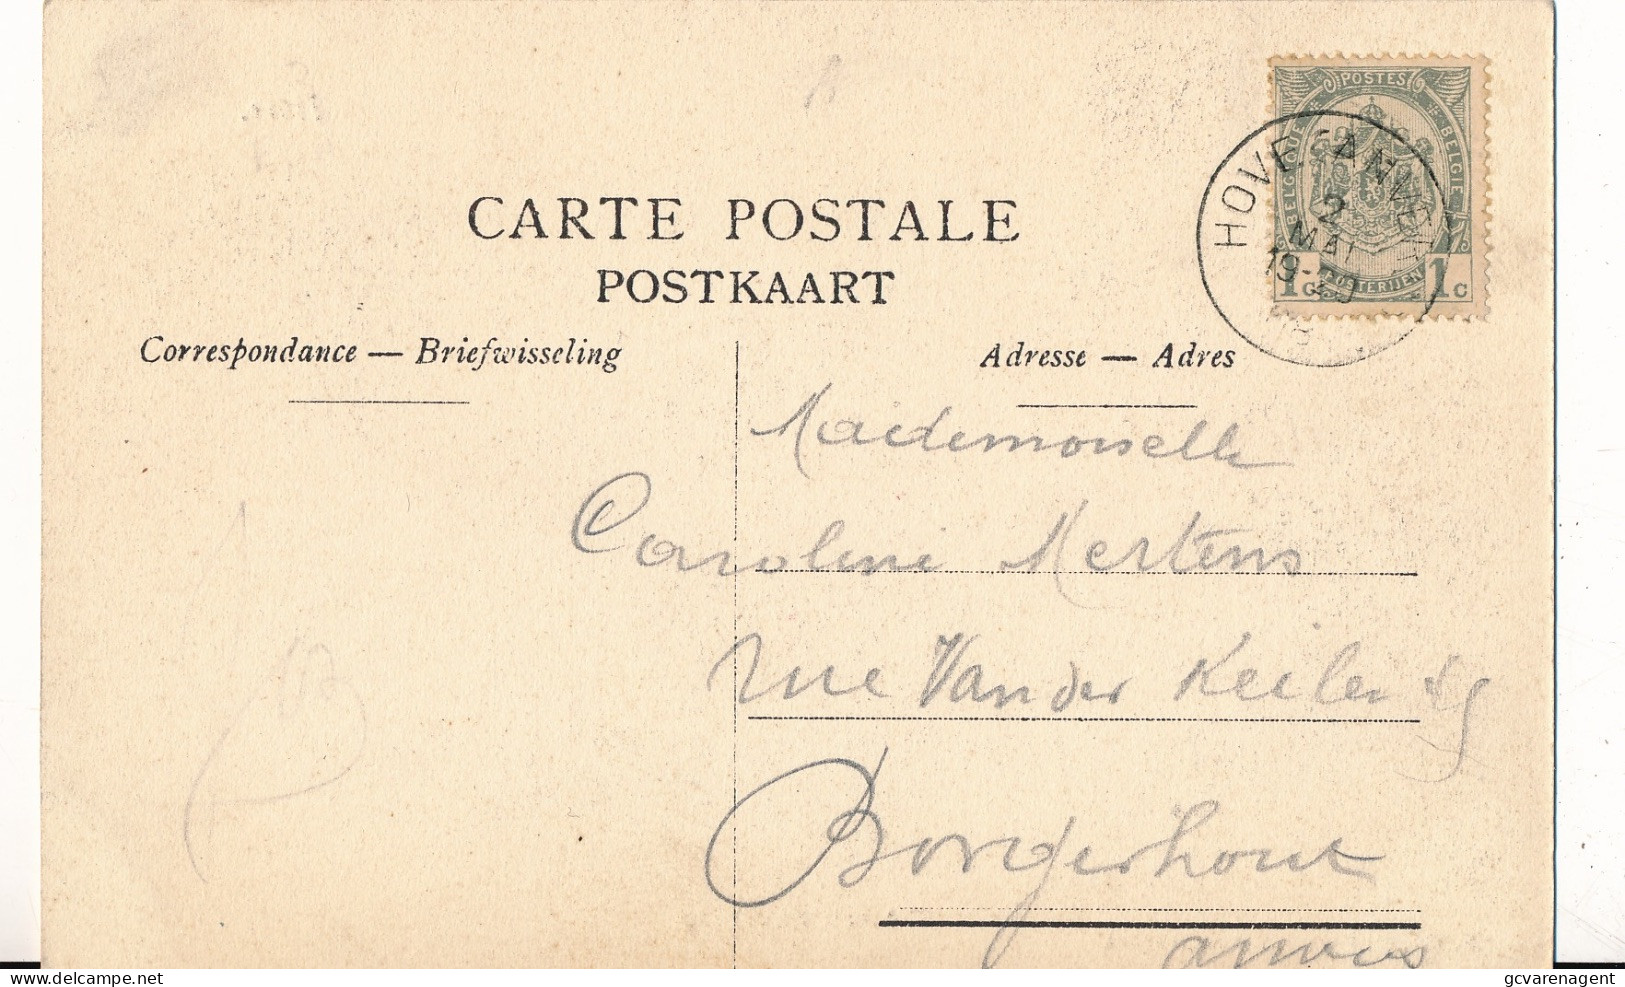 CARTE POSTALE
POSTKAART
Correspondance — Briefwisseling
Adresse — Adres
POSTES
BELGIQUE
BELGIE
POSTERIJEN
1c 1c
HOVE (ANVERS
2
MAI
19-20
Mademoiselle
Caroline Mertens
rue Van der Keilen
Borgerhout
anvers
delcampe.net
gcvarenagent